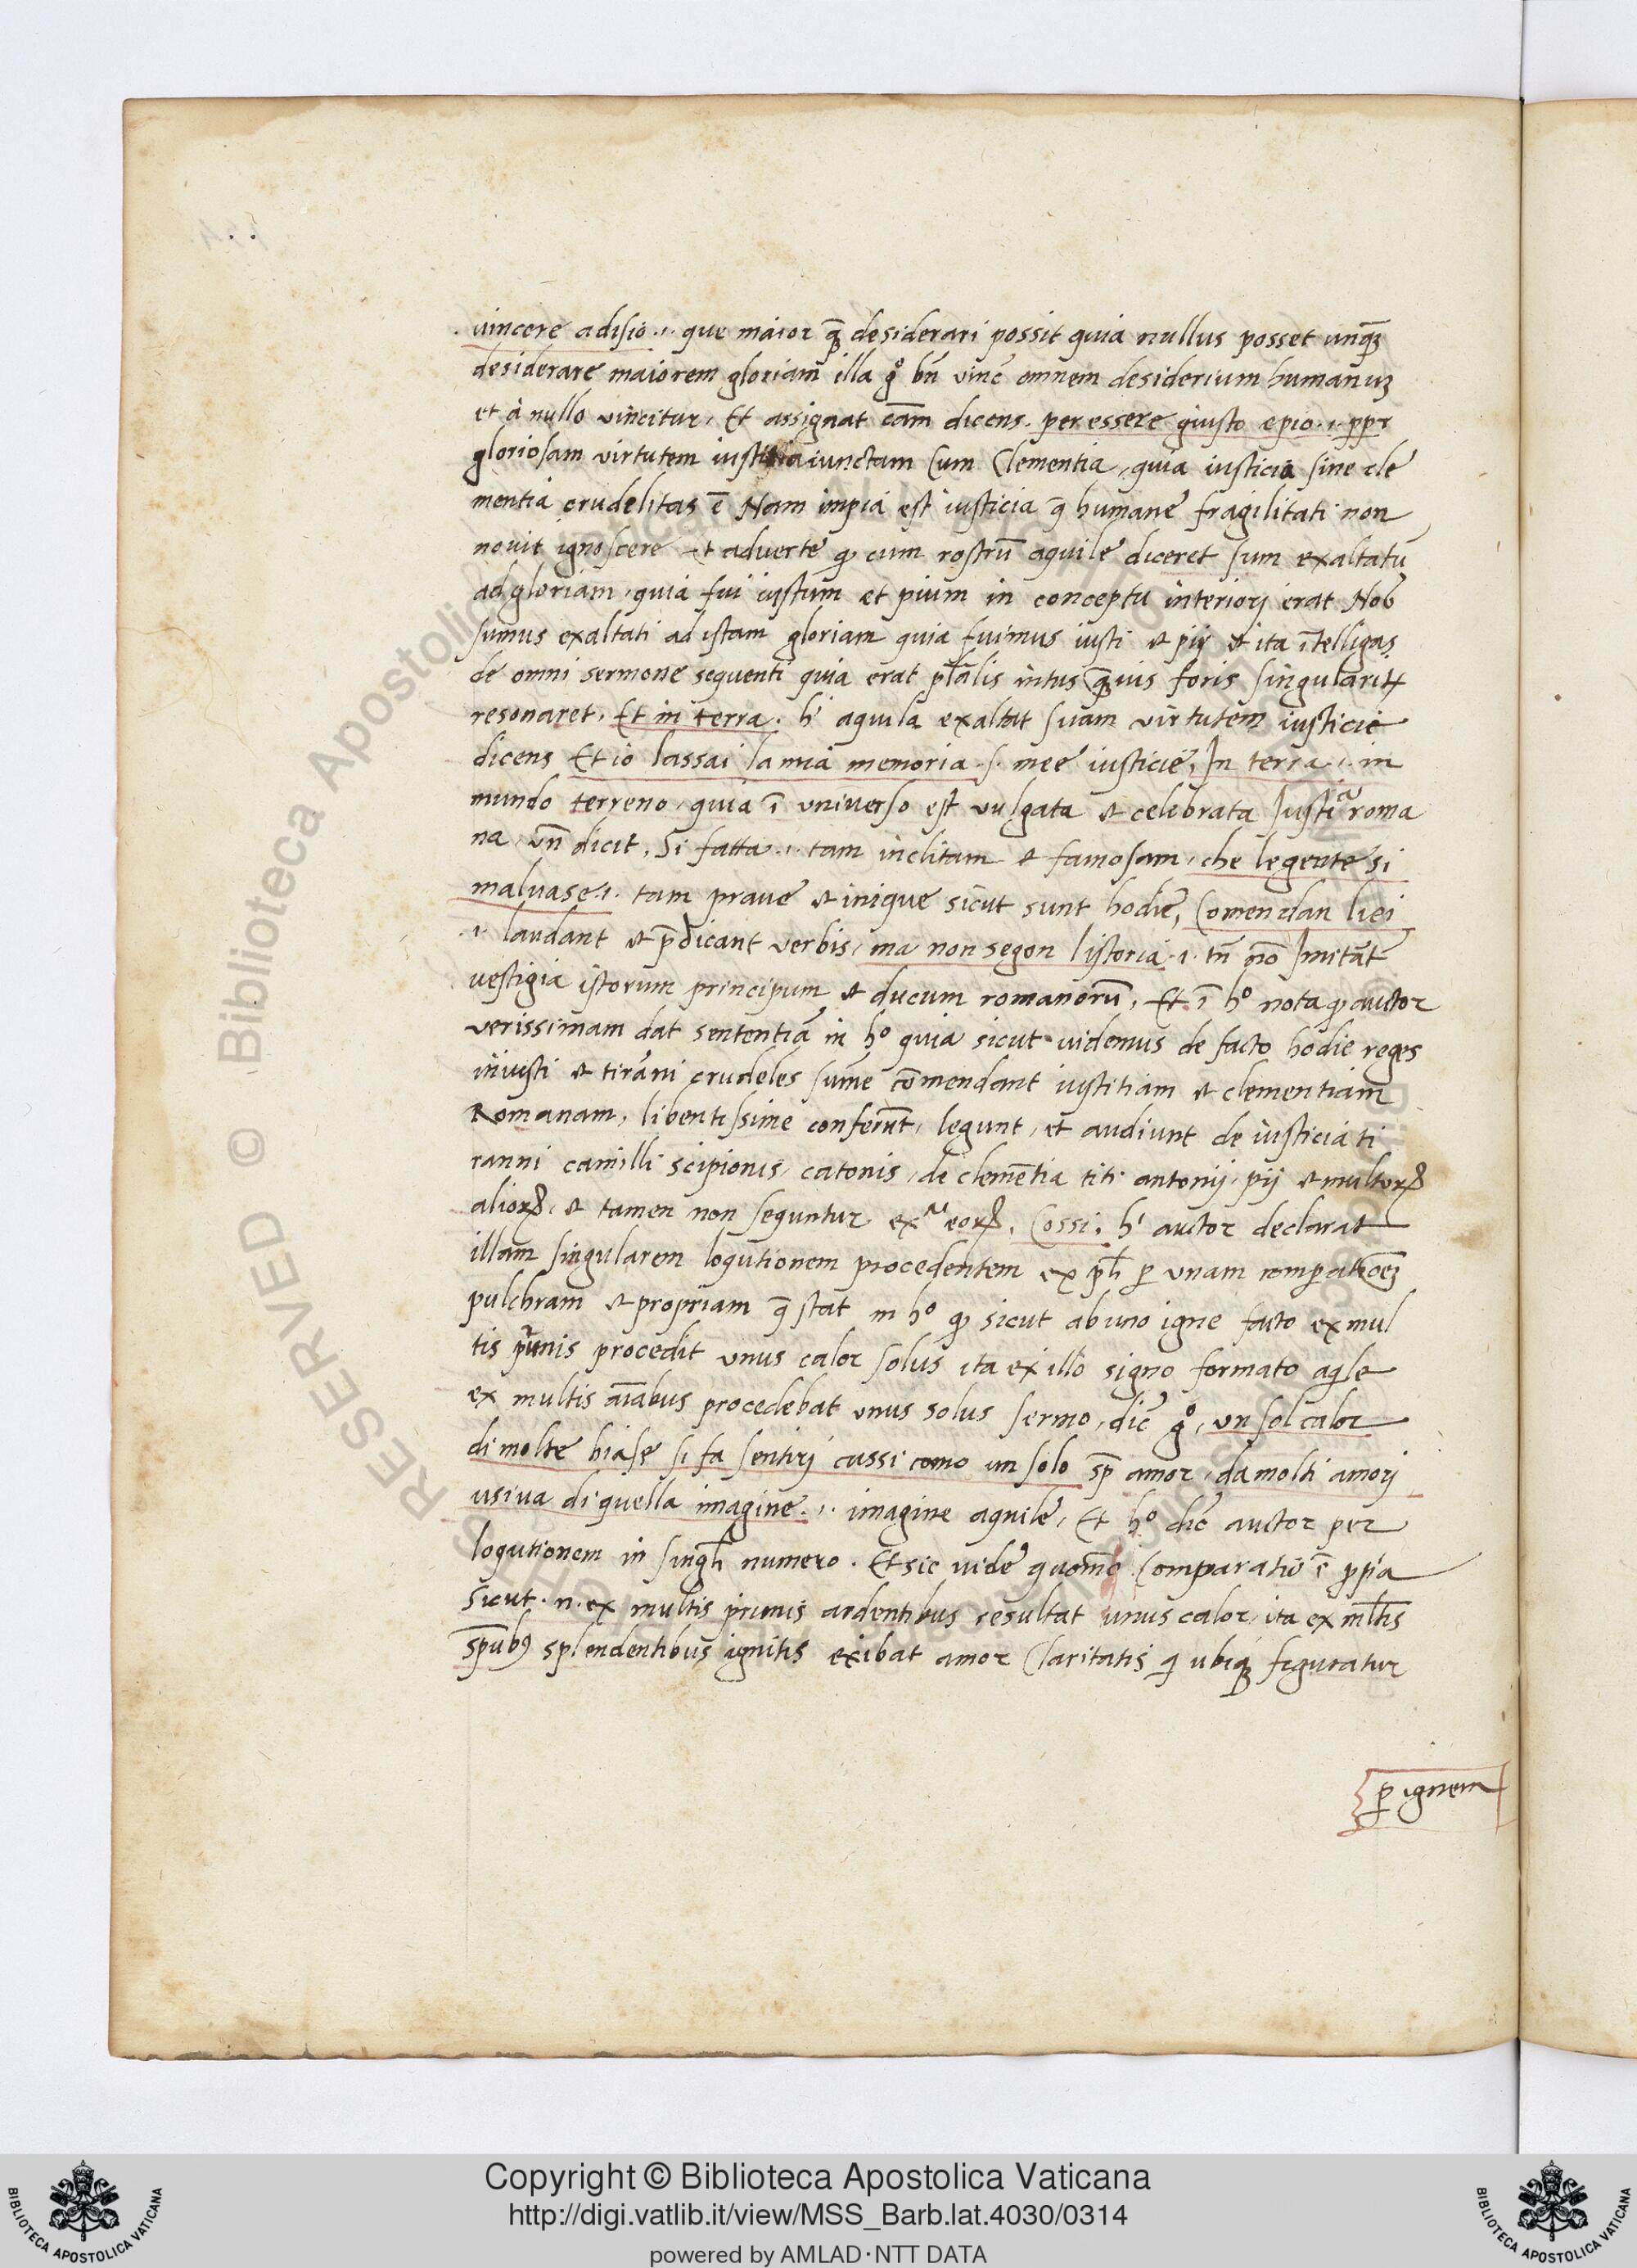 vincere adisio .i. que maior q̃ȝ desiderari possit quia nullus posset unq̃ȝ
desiderare maiorem gloriam illa gͦ bñ vinc̃ omnem desiderium humanuȝ
et à nullo vincitur, Et assignat cãm dicens. per essere giusto epio .i. ppr̃
gloriosam virtutem iustitia iunctam Cum Clementia, quia iusticia sine cle
mentia crudelitas ẽ Nam impia est iusticia q̃ humane fragilitati non
nouit ignoscere et aduerte qꝫ cum rostrũ aquile diceret sum exaltatũ
ad gloriam, quia fui iustum et pium in conceptu interiorj erat Nos
sumus exaltati ad istam gloriam quia fuimus iusti et pij et ita ĩtelligas
de omni sermone sequenti quia erat pl̃alis intus q̃ȝuis foris singularitꝝ
resonaret, Et in terra. hͥ aquila exaltat suam virtutem iusticie
dicens Et io lassai la mia memoria .s. mee iusticie, In terra .i. in
mundo terreno, quia ĩ universo est vulgata et celebrata Iustiᵃ roma
na, vñ dicit, Si fatta .i. tam inclitam et famosam, che le gente si
maluase .i. tam praue et inique sicut sunt hodie, Comendan liei
.i. laudant et p̃dicant verbis, ma non segon listoria .i. tñ nõ Imitãt
vestigia istorum principum et ducum romanorũ, Et ĩ hͦ nota qꝫ auctor
verissimam dat sententiã in hͦ quia sicut videmus de facto hodie reges
iniusti et tirãni crudeles sum̃e com̃endant iustitiam et clementiam
Romanam, libentissime conferũt, legunt, et audiunt de iusticia ti
ranni camilli scipionis, catonis, de clemẽtia titi antonij pij et multorꝝ
aliorꝝ, et tamen non sequntur exᵃ eorꝝ, Cossi, hͥ auctor declarat
illam singularem loqutionem procedentem ex pl̃i ꝑ unam comparatiõeȝ
pulchram et propriam q̃ stat in hͦ qꝫ sicut ab uno igne facto ex mul
tis prunis procedit unus calor solus ita ex illo signo formato aqͥle
ex multis aĩabus procedebat unus solus sermo, dic̃ gͦ, un sol calor
di molte biase si fa sentirj cussi como un solo sp̃ amor, da molti amorj
usiua di quella imagine .i. imagine aquile, Et hͦ dic̃ auctor per
loqutionem in singl̃i numero. Et sic vide quom̃o Comparatio ẽ pp̃ia
Sicut .n. ex multis prunis ardentibus resultat unus calor, ita ex ml̃tis
sp̃ubꝰ splendentibus ignitis exibat amor Claritatis qͥ ubiqȝ figuratur
ꝑ ignem
Copyright © Biblioteca Apostolica Vaticana
http://digi.vatlib.it/view/MSS_Barb.lat.4030/0314
powered by AMLAD·NTT DATA
BIBLIOTECA APOSTOLICA VATICANA
BIBLIOTECA APOSTOLICA VATICANA